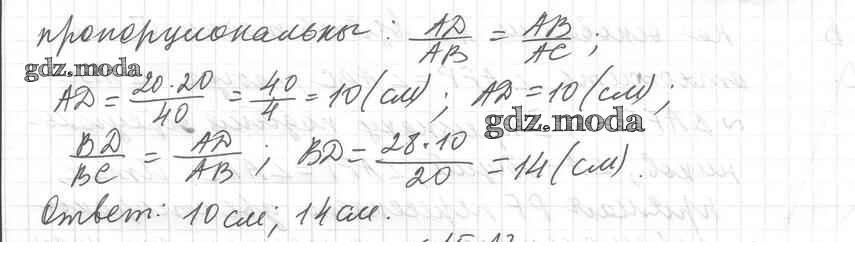 пропорциональны: AD/AB = AB/AC;
gdz.moda
AD = 20·20/40 = 40/4 = 10 (см); AD = 10 (см);
gdz.moda
BD/BC = AD/AB; BD = 28·10/20 = 14 (см).
Ответ: 10 см; 14 см.